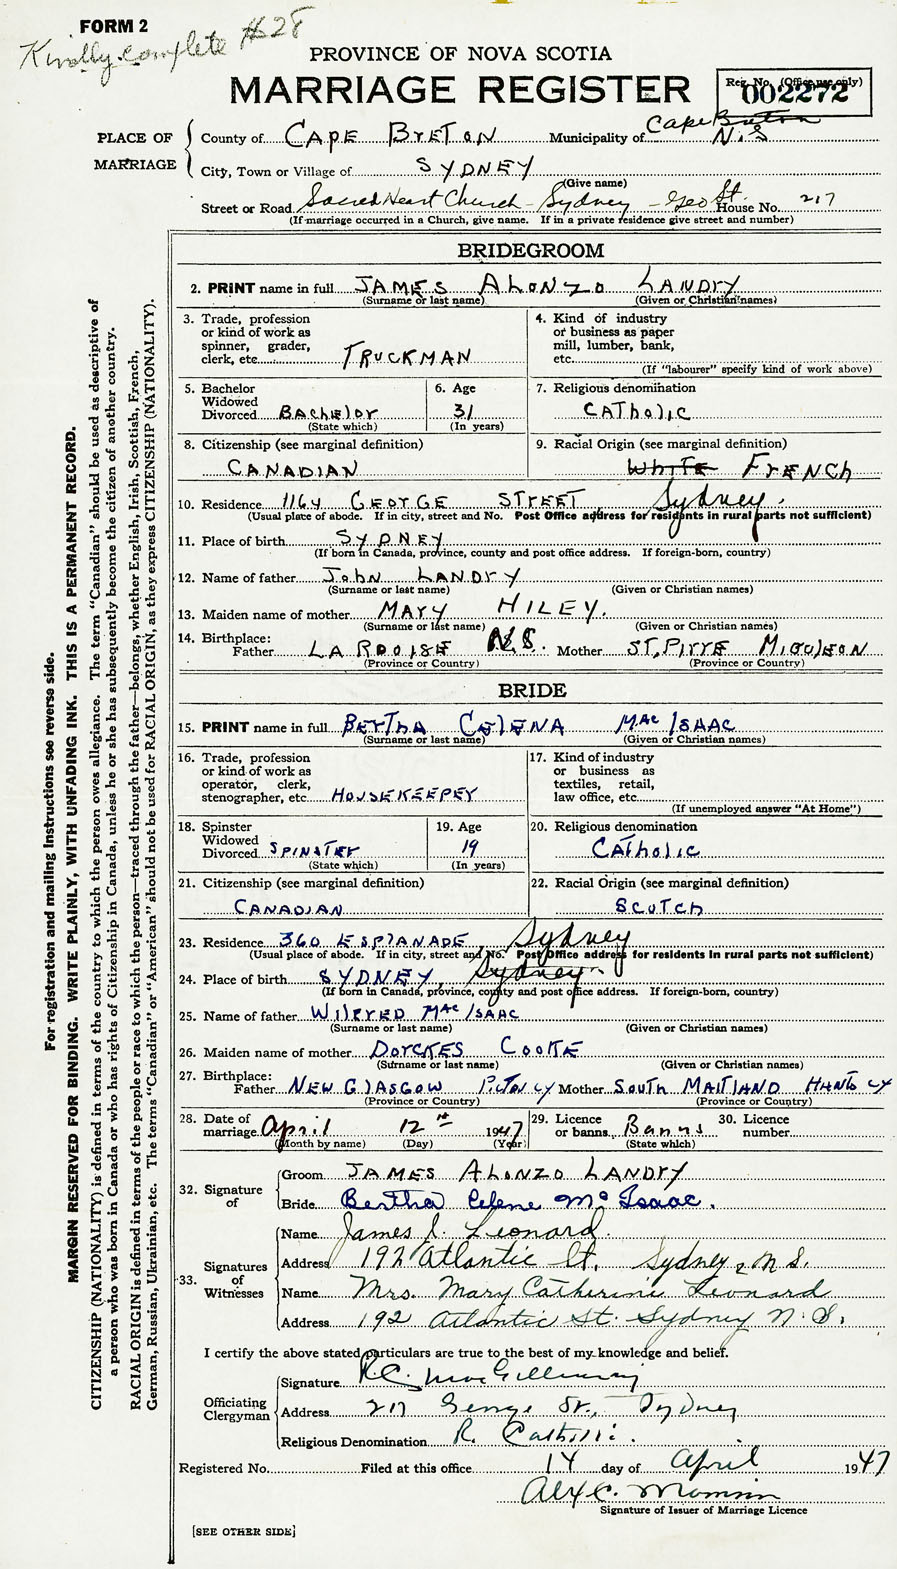 FORM 2
Kindly complete #28
PROVINCE OF NOVA SCOTIA
MARRIAGE REGISTER
Reg. No. (Office use only)
002272
PLACE OF MARRIAGE
County of CAPE BRETON Municipality of Cape Breton N.S
City, Town or Village of SYDNEY
(Give name)
Street or Road Sacred Heart Church - Sydney - Geo St. House No. 217
(If marriage occurred in a Church, give name. If in a private residence give street and number)
BRIDEGROOM
2. PRINT name in full JAMES ALONZO LANDRY
(Surname or last name) (Given or Christian names)
3. Trade, profession
or kind of work as
spinner, grader,
clerk, etc. TRUCKMAN
4. Kind of industry
or business as paper
mill, lumber, bank,
etc.
(If "labourer" specify kind of work above)
5. Bachelor
Widowed
Divorced BAchelor
(State which)
6. Age
31
(In years)
7. Religious denomination
CATholic
8. Citizenship (see marginal definition)
CANADIAN
9. Racial Origin (see marginal definition)
WHITE FRENCH
10. Residence 1164 GEORGE STREET Sydney.
(Usual place of abode. If in city, street and No. Post Office address for residents in rural parts not sufficient)
11. Place of birth SYDNEY
(If born in Canada, province, county and post office address. If foreign-born, country)
12. Name of father John LANDRY
(Surname or last name) (Given or Christian names)
13. Maiden name of mother MARY HILEY.
(Surname or last name) (Given or Christian names)
14. Birthplace:
Father LA ROOISE N.S. Mother ST. PIRRE MIQULEON
(Province or Country) (Province or Country)
BRIDE
15. PRINT name in full BERTHA CELENA Mac ISAAC
(Surname or last name) (Given or Christian names)
16. Trade, profession
or kind of work as
operator, clerk,
stenographer, etc. HOUSEKEEPER
17. Kind of industry
or business as
textiles, retail,
law office, etc.
(If unemployed answer "At Home")
18. Spinster
Widowed
Divorced SPINSTER
(State which)
19. Age
19
(In years)
20. Religious denomination
CATholic
21. Citizenship (see marginal definition)
CANADIAN
22. Racial Origin (see marginal definition)
SCOTCH
23. Residence 360 ESPLANADE, Sydney
(Usual place of abode. If in city, street and No. Post Office address for residents in rural parts not sufficient)
24. Place of birth SYDNEY, Sydney
(If born in Canada, province, county and post office address. If foreign-born, country)
25. Name of father WILFRED Mac ISAAC
(Surname or last name) (Given or Christian names)
26. Maiden name of mother DORCKES COOKE
(Surname or last name) (Given or Christian names)
27. Birthplace:
Father NEW GLASGOW PICTOU CY Mother SOUTH MAITLAND HANTS CY
(Province or Country) (Province or Country)
28. Date of
marriage April 12th 1947
(Month by name) (Day) (Year)
29. Licence
or banns Banns
(State which)
30. Licence
number
32. Signature of
Groom JAMES ALONZO LANDRY
Bride Bertha Celene Mc Isaac.
33. Signatures of Witnesses
Name James J. Leonard.
Address 192 Atlantic St. Sydney, N.S.
Name Mrs. Mary Catherine Leonard
Address 192 Atlantic St. Sydney N.S.
I certify the above stated particulars are true to the best of my knowledge and belief.
Officiating Clergyman
Signature R.C. MacGillivray
Address 217 George St., Sydney
Religious Denomination R. Catholic.
Registered No. Filed at this office 14 day of April 1947
Alex C.
Signature of Issuer of Marriage Licence
[SEE OTHER SIDE]
For registration and mailing instructions see reverse side.
MARGIN RESERVED FOR BINDING. WRITE PLAINLY, WITH UNFADING INK. THIS IS A PERMANENT RECORD.
CITIZENSHIP (NATIONALITY) is defined in terms of the country to which the person owes allegiance. The term "Canadian" should be used as descriptive of
a person who was born in Canada or who has rights of Citizenship in Canada, unless he or she has subsequently become the citizen of another country.
RACIAL ORIGIN is defined in terms of the people or race to which the person—traced through the father—belongs, whether English, Irish, Scottish, French,
German, Russian, Ukrainian, etc. The terms "Canadian" or "American" should not be used for RACIAL ORIGIN, as they express CITIZENSHIP (NATIONALITY).